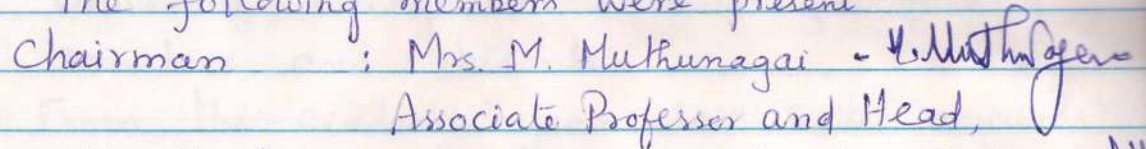 The following members were present
Chairman : Mrs. M. Muthunagai - M. Muthunagai
Associate Professor and Head,